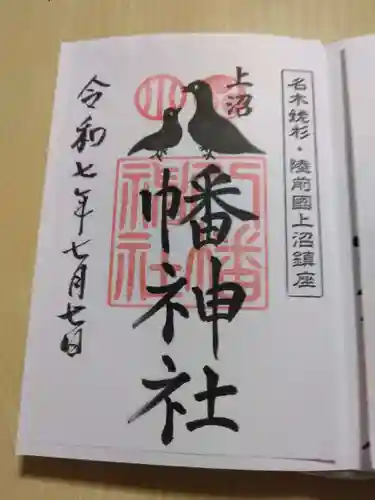 名木銚杉・陸前國上沼鎮座
上沼
幡神社
八幡神社
令和七年七月七日